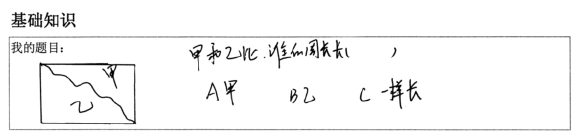 基础知识
我的题目:
甲和乙比.谁的周长长( )
甲
乙
A甲 B乙 C 一样长